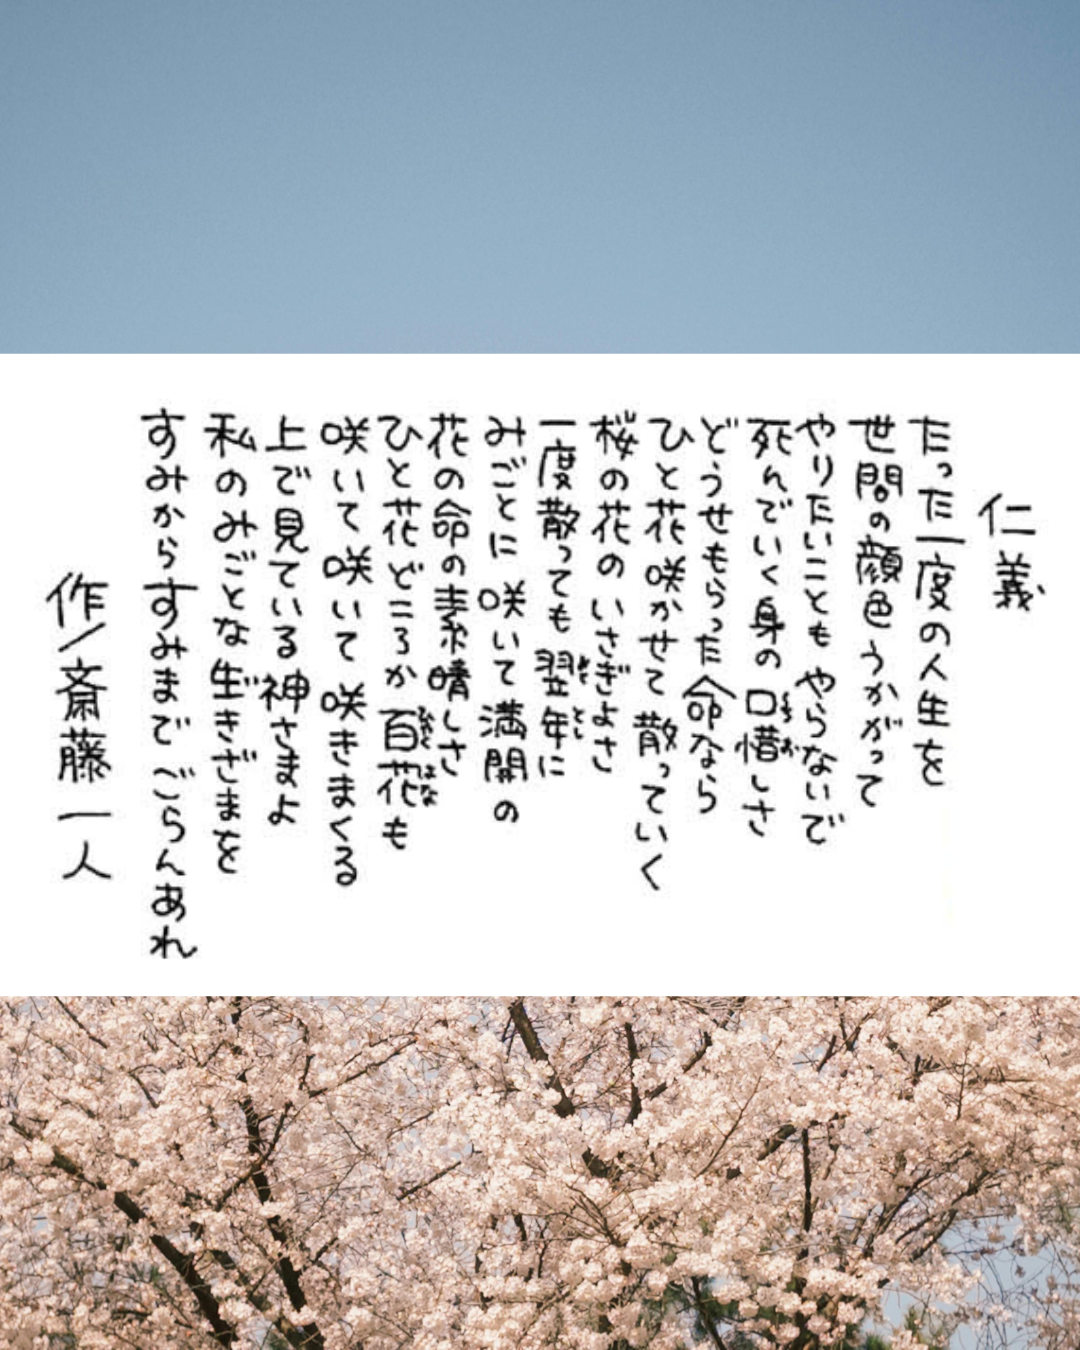 仁義
たった一度の人生を
世間の顔色うかがって
やりたいことも やらないで
死んでいく身の口惜しさ
どうせもらった命なら
ひと花咲かせて散っていく
桜の花のいさぎよさ
一度散っても翌年に
みごとに咲いて満開の
花の命の素晴しさ
ひと花どころか百花も
咲いて咲いて咲きまくる
上で見ている神さまよ
私のみごとな生きざまを
すみからすみまでごらんあれ
作/斎藤一人